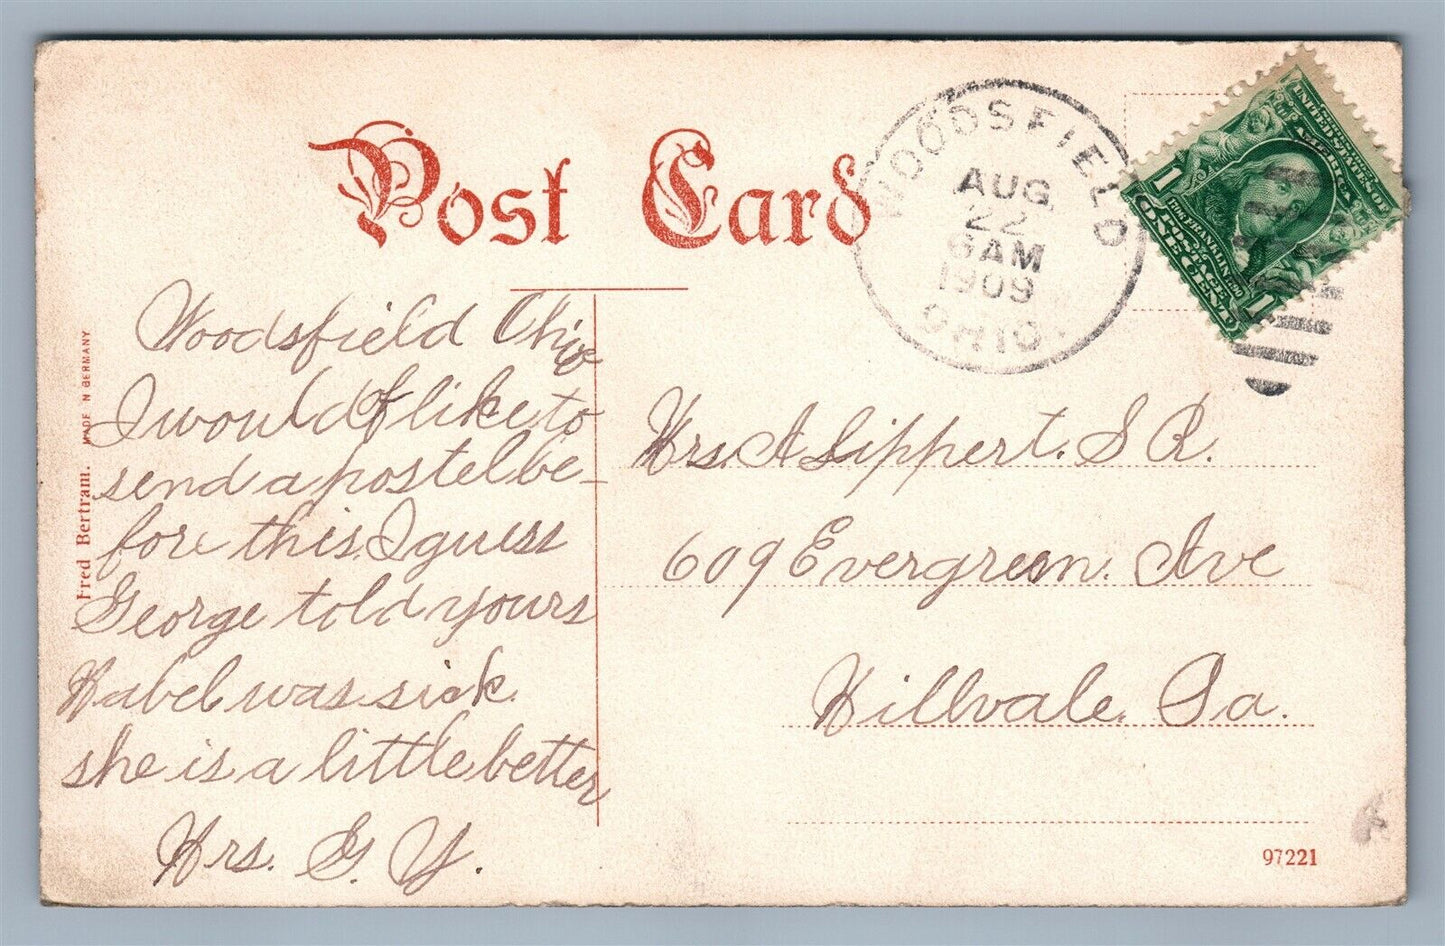 Post Card
WOODSFIELD
AUG
22
6AM
1909
OHIO.
UNITED STATES OF
AMERICA
1
FRANKLIN
POSTAGE
ONE CENT
1
Woodsfield Ohio
I would of like to
send a postel be-
fore this I guess
George told yours
Mabel was sick
she is a little better
Mrs. G. Y.
Mrs. A Lippert. S R.
609 Evergreen. Ave
Millvale. Pa.
Fred Bertram. MADE IN GERMANY
97221